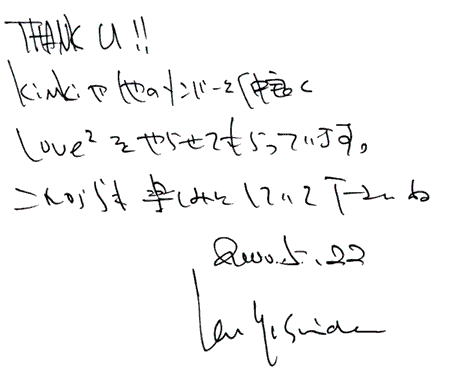 THANK U!!
Kinkiや他のメンバーと仲良く
Love² をやらせてもらっています。
これからも楽しみにしていて下さいね
2000.5.22